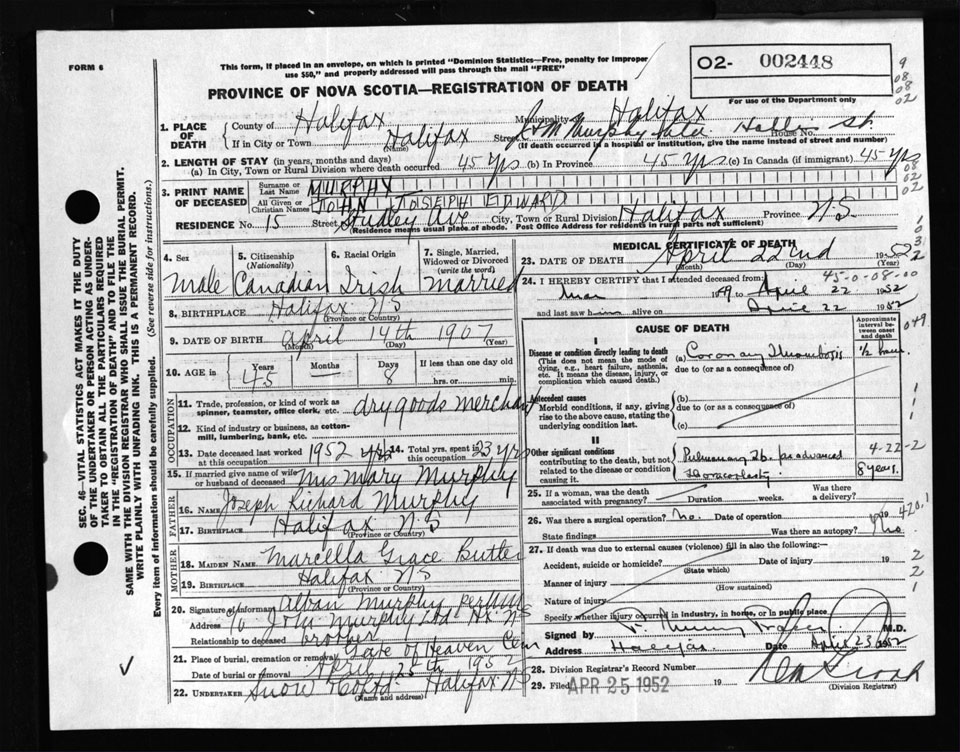 FORM 6
This form, if placed in an envelope, on which is printed "Dominion Statistics—Free, penalty for improper
use $50," and properly addressed will pass through the mail "FREE"
PROVINCE OF NOVA SCOTIA—REGISTRATION OF DEATH
O2- 002448
For use of the Department only
9
08
08
02
1. PLACE OF DEATH
County of Halifax Municipality Halifax
If in City or Town Halifax Street Halli St. House No.
(Name) (If death occurred in a hospital or institution, give the name instead of street and number)
2. LENGTH OF STAY (in years, months and days)
(a) In City, Town or Rural Division where death occurred 45 yrs (b) In Province 45 yrs (c) In Canada (if immigrant) 45 yrs
08
02
02
3. PRINT NAME OF DECEASED
Surname or Last Name MURPHY
All Given or Christian Names JOHN JOSEPH EDWARD
RESIDENCE No. 15 Street Studley Ave City, Town or Rural Division Halifax Province N.S.
(Residence means usual place of abode. Post Office Address for residents in rural parts not sufficient)
4. Sex Male
5. Citizenship (Nationality) Canadian
6. Racial Origin Irish
7. Single, Married, Widowed or Divorced (write the word) Married
8. BIRTHPLACE Halifax N.S
(Province or Country)
9. DATE OF BIRTH April 14th 1907
(Month) (Day) (Year)
10. AGE in Years 45 Months — Days 8 If less than one day old
hrs. or min.
OCCUPATION
11. Trade, profession, or kind of work as
spinner, teamster, office clerk, etc. dry goods merchant
12. Kind of industry or business, as cotton-
mill, lumbering, bank, etc.
13. Date deceased last worked at this occupation 1952
14. Total yrs. spent in this occupation 23 yrs
15. If married give name of wife or husband of deceased Mrs Mary Murphy
FATHER
16. Name Joseph Richard Murphy
17. Birthplace Halifax N.S
(Province or Country)
MOTHER
18. Maiden Name Marcella Grace Butler
19. Birthplace Halifax N.S
(Province or Country)
20. Signature of informant Alban Murphy per
Address c/o John Murphy Ltd Hx NS
Relationship to deceased brother
21. Place of burial, cremation or removal Gate of Heaven Cem
Date of burial or removal April 25th 1952
22. UNDERTAKER Snow & Co Ltd. Halifax N.S
(Name and address)
MEDICAL CERTIFICATE OF DEATH
23. DATE OF DEATH April 22nd 1952
(Month) (Day) (Year)
45-0-08-00
24. I HEREBY CERTIFY that I attended deceased from:
Mar 1949 to April 22 1952
and last saw him alive on April 22 1952
CAUSE OF DEATH
Approximate interval between onset and death
I
Disease or condition directly leading to death (a) Coronary Thrombosis 1/2 hour
(This does not mean the mode of dying, e.g., heart failure, asthenia, etc. It means the disease, injury, or complication which caused death.)
due to (or as a consequence of)
Antecedent causes
Morbid conditions, if any, giving rise to the above cause, stating the underlying condition last.
(b)
due to (or as a consequence of)
(c)
II
Other significant conditions
contributing to the death, but not related to the disease or condition causing it.
Pulmonary Tb. far advanced
Thoracoplasty
8 years.
4-22-2
25. If a woman, was the death associated with pregnancy? Duration weeks. Was there a delivery?
26. Was there surgical operation? No. Date of operation 19
State findings Was there an autopsy? No.
420.1
27. If death was due to external causes (violence) fill in also the following:—
Accident, suicide or homicide? Date of injury 19
(State which)
Manner of injury
(How sustained)
Nature of injury
Specify whether injury occurred in industry, in home, or in public place
Signed by M.D.
Address Halifax. Date April 25 1952
28. Division Registrar's Record Number
29. Filed APR 25 1952 19
(Division Registrar)
SEC. 46—VITAL STATISTICS ACT MAKES IT THE DUTY
OF THE UNDERTAKER OR PERSON ACTING AS UNDER-
TAKER TO OBTAIN ALL THE PARTICULARS REQUIRED
IN THE "REGISTRATION OF DEATH" AND TO FILE THE
SAME WITH THE DIVISION REGISTRAR WHO SHALL ISSUE THE BURIAL PERMIT.
WRITE PLAINLY WITH UNFADING INK. THIS IS A PERMANENT RECORD.
Every item of information should be carefully supplied. (See reverse side for instructions.)